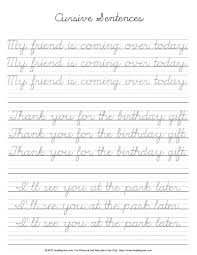 Cursive Sentences
My friend is coming over today.
My friend is coming over today.
My friend is coming over today.
Thank you for the birthday gift.
Thank you for the birthday gift.
Thank you for the birthday gift.
I'll see you at the park later.
I'll see you at the park later.
I'll see you at the park later.